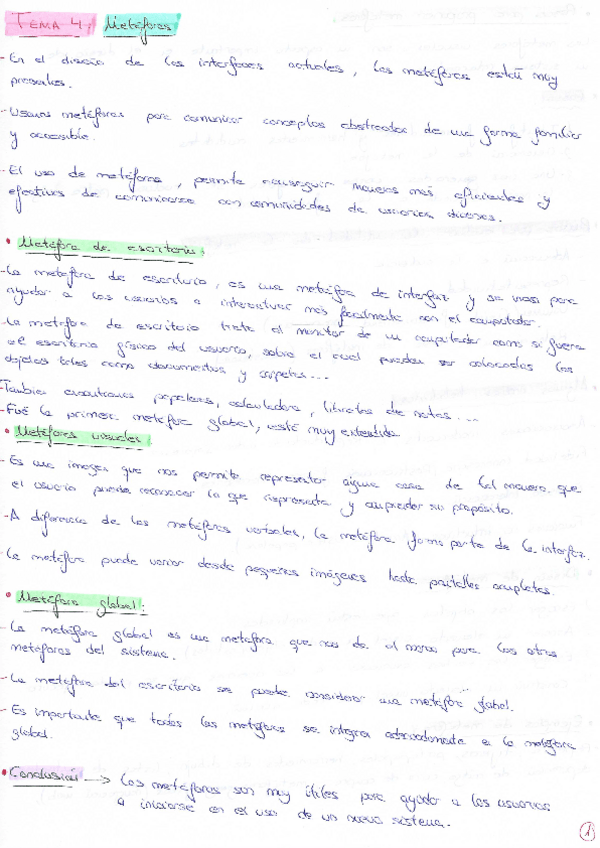 TEMA 4: Metáforas
- En el diseño de las interfaces actuales, las metáforas están muy
presentes.
- Usamos metáforas para comunicar conceptos abstractos de una forma familiar
y accesible.
- El uso de metáforas, permite conseguir maneras más eficientes y
efectivas de comunicarse con comunidades de usuarios diversos.
• Metáfora de escritorio:
- La metáfora de escritorio, es una metáfora de interfaz y se usa para
ayudar a los usuarios a interactuar más facilmente con el computador.
- La metáfora de escritorio trata el monitor de un computador como si fuera
el escritorio físico del usuario, sobre el cual pueden ser colocados los
objetos tales como documentos y carpetas...
- Tambien encontramos papelera, calculadora, libretas de notas....
- Fué la primera metáfora global, está muy extendida
• Metáforas visuales:
- Es una imagen que nos permite representar alguna cosa de tal manera que
el usuario pueda reconocer lo que representa y comprender su propósito.
- A diferencia de las metáforas verbales, la metáfora forma parte de la interfaz.
- La metáfora puede variar desde pequeñas imágenes hasta pantallas completas.
• Metáfora global:
- La metáfora global es una metáfora que nos da el marco para las otras
metáforas del sistema.
- La metáfora del escritorio se puede considerar una metáfora global.
- Es importante que todas las metáforas se integren adecuadamente a la metáfora
global.
• Conclusión --> Las metáforas son muy útiles para ayudar a los usuarios
a iniciarse en el uso de un nuevo sistema.
1